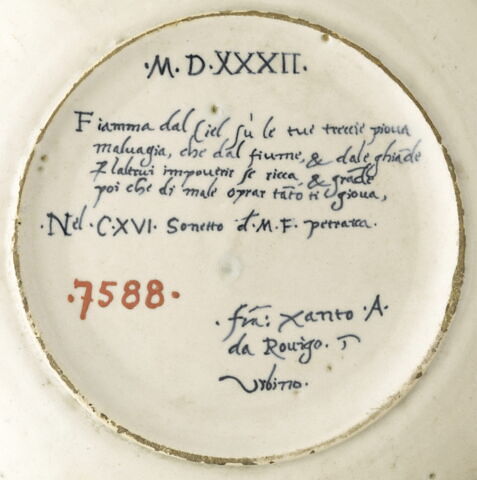 ·M·D·XXXII·
Fiamma dal Ciel sù le tue treccie pioua
maluagia, che dal fiume, & dale ghiãde
Plaltrui impouerir se ricca & grãde
poi che di male oprar tãto ti gioua,
·Nel·C·XVI· Sonetto d·M·F· petrarca·
·7588·
·frã: Xanto ·A·
da Rouigo· ĩ
Vrbino·